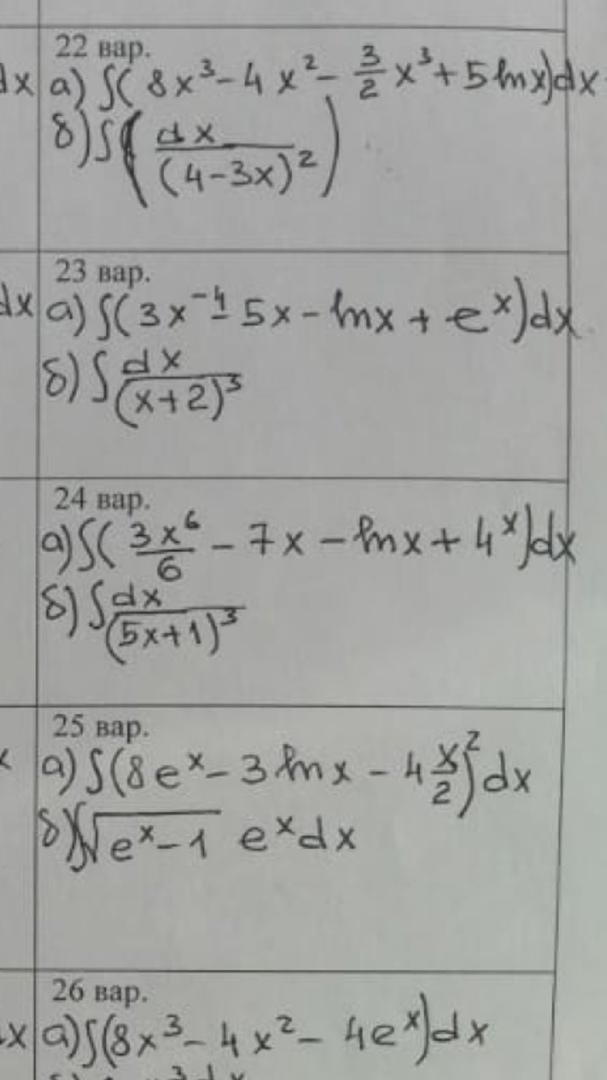 22 вар.
dx а) ∫( 8x³ - 4x² - 3/2 x³ + 5 ln x)dx
б) ∫( dx/(4-3x)² )
23 вар.
dx а) ∫(3x⁻⁴ - 5x - ln x + eˣ)dx
б) ∫ dx/(x+2)³
24 вар.
а) ∫( 3x⁶/6 - 7x - ln x + 4ˣ)dx
б) ∫ dx/(5x+1)³
25 вар.
а) ∫(8eˣ - 3 ln x - 4 x/2)² dx
б) ∫√(eˣ-1) eˣdx
26 вар.
x а) ∫(8x³ - 4x² - 4eˣ)dx